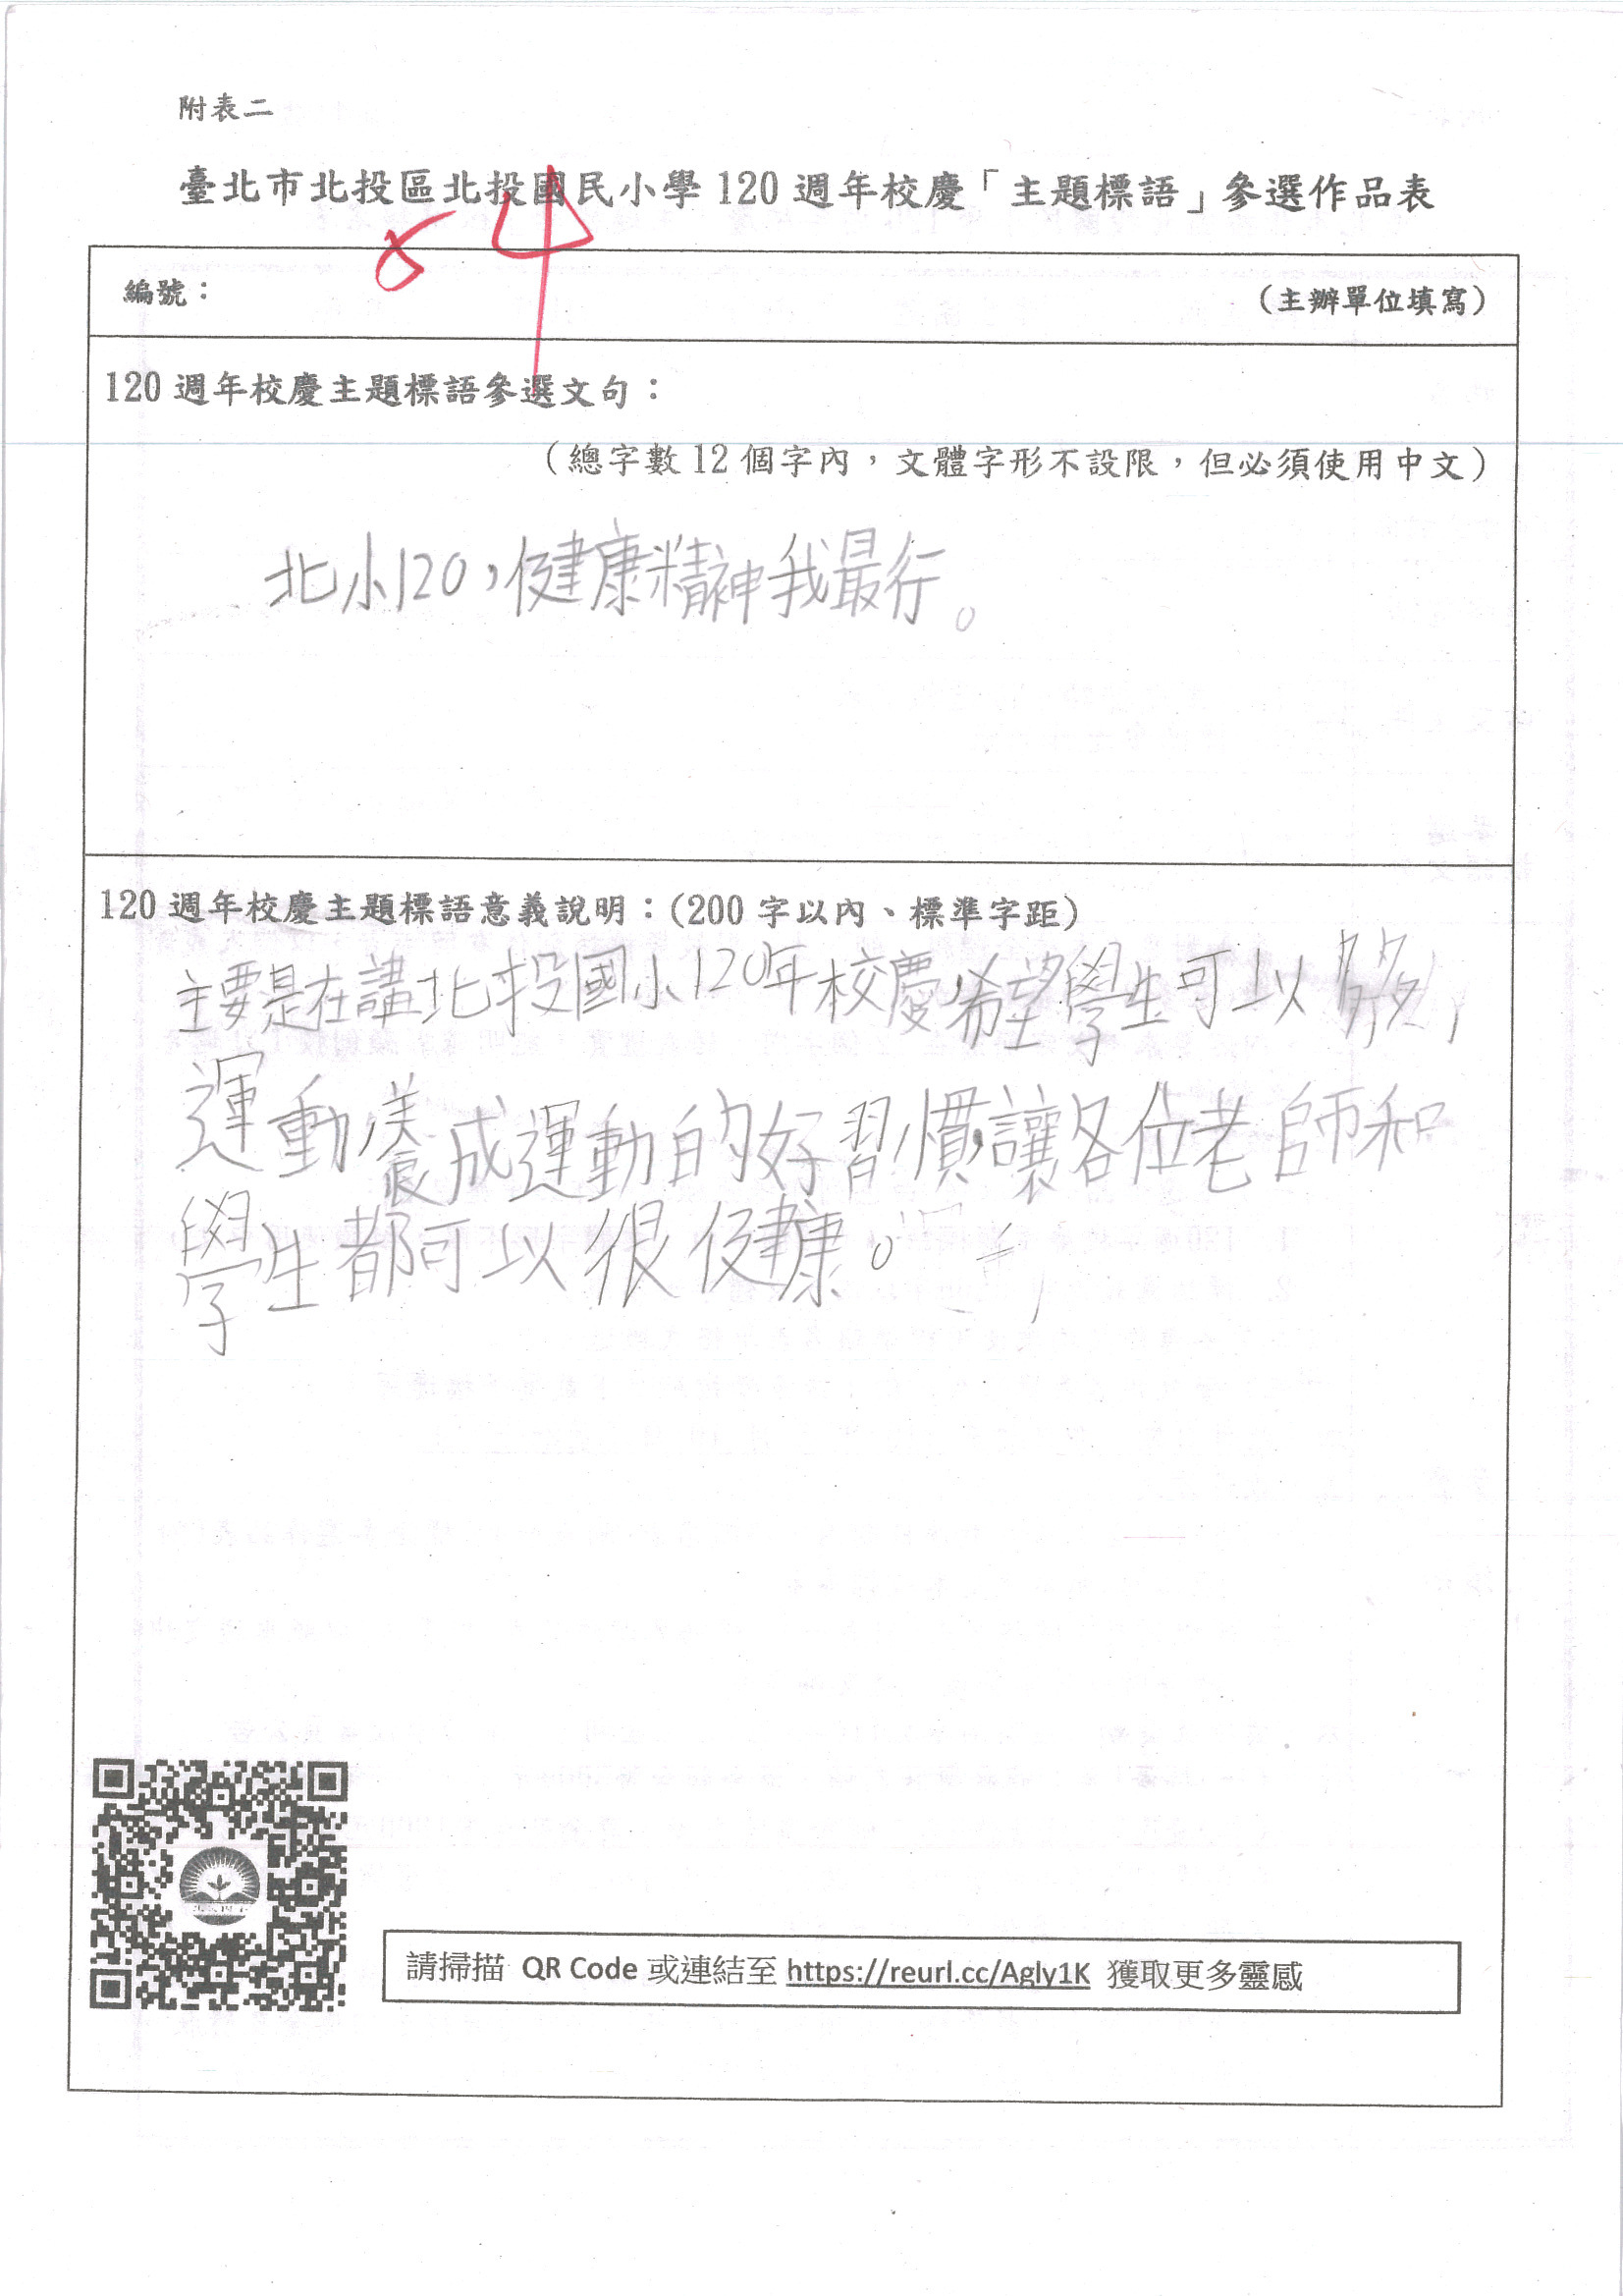 附表二
臺北市北投區北投國民小學 120 週年校慶「主題標語」參選作品表
編號：
（主辦單位填寫）
120 週年校慶主題標語參選文句：
（總字數 12 個字內，文體字形不設限，但必須使用中文）
北小120，健康精神我最行。
120 週年校慶主題標語意義說明：(200 字以內、標準字距)
主要是在講北投國小120年校慶，希望學生可以多
運動，養成運動的好習慣，讓各位老師和
學生都可以很健康。
請掃描 QR Code 或連結至 https://reurl.cc/Agly1K 獲取更多靈感